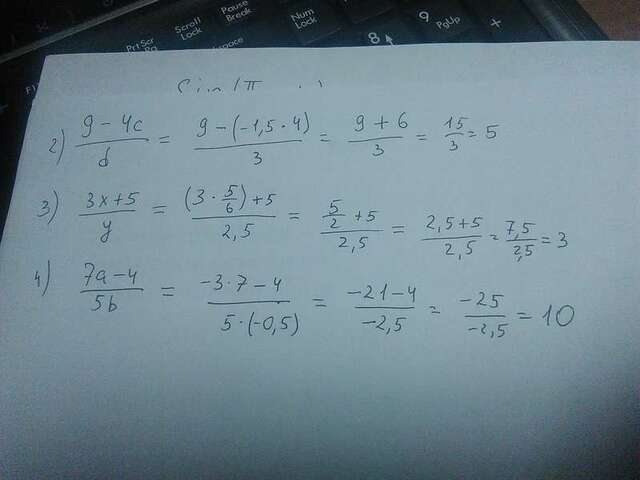 Prt Scr
Scroll Lock
Pause Break
Num Lock
8
9 PgUp
+
2) (9 - 4c)/d = (9 - (-1,5 · 4))/3 = (9 + 6)/3 = 15/3 = 5
3) (3x + 5)/y = ((3 · 5/6) + 5)/2,5 = (5/2 + 5)/2,5 = (2,5 + 5)/2,5 = 7,5/2,5 = 3
4) (7a - 4)/5b = (-3 · 7 - 4)/(5 · (-0,5)) = (-21 - 4)/(-2,5) = -25/-2,5 = 10